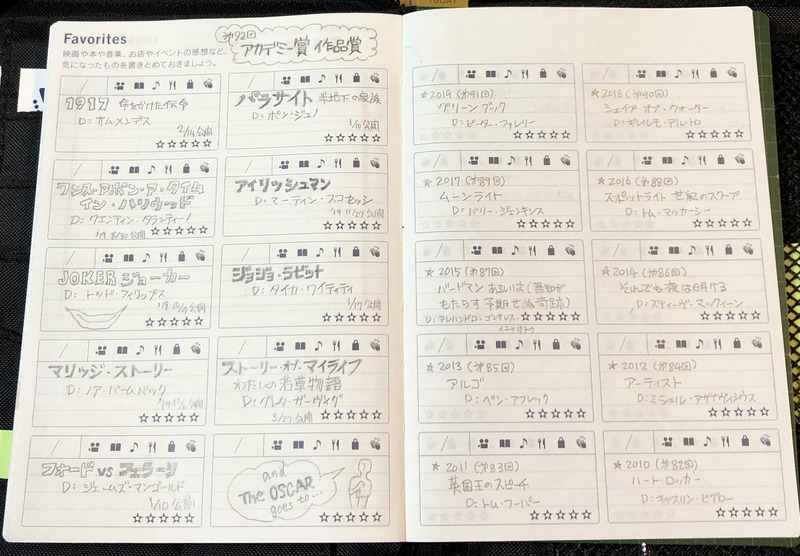 TODAY
Favorites
映画や本や音楽、お店やイベントの感想など、
気になったものを書きとめておきましょう。
第92回
アカデミー賞 作品賞
1917 命をかけた伝令
D: サム・メンデス
2/14公開
パラサイト 半地下の家族
D: ポン・ジュノ
1/10公開
ワンス・アポン・ア・タイム
イン・ハリウッド
D: クエンティン・タランティーノ
'19 8/30公開
アイリッシュマン
D: マーティン・スコセッシ
'19 11/27公開
JOKER ジョーカー
D: トッド・フィリップス
ジョジョ・ラビット
D: タイカ・ワイティティ
1/17公開
マリッジ・ストーリー
D: ノア・バームバック
ストーリー・オブ・マイライフ
わたしの若草物語
D: グレタ・ガーウィグ
3/27公開
フォード vs フェラーリ
D: ジェームズ・マンゴールド
1/10公開
and
The OSCAR
goes to…
★2019 (第91回)
グリーンブック
D: ピーター・ファレリー
★2018 (第90回)
シェイプ・オブ・ウォーター
D: ギレルモ・デル・トロ
★2017 (第89回)
ムーンライト
D: バリー・ジェンキンス
★2016 (第88回)
スポットライト 世紀のスクープ
D: トム・マッカーシー
★2015 (第87回)
バードマン あるいは (無知が
もたらす予期せぬ奇跡)
D: アレハンドロ・ゴンサレス・
イニャリトゥ
★2014 (第86回)
それでも夜は明ける
D: スティーヴ・マックィーン
★2013 (第85回)
アルゴ
D: ベン・アフレック
★2012 (第84回)
アーティスト
D: ミシェル・アザナヴィシウス
★2011 (第83回)
英国王のスピーチ
D: トム・フーパー
★2010 (第82回)
ハート・ロッカー
D: キャスリン・ビグロー